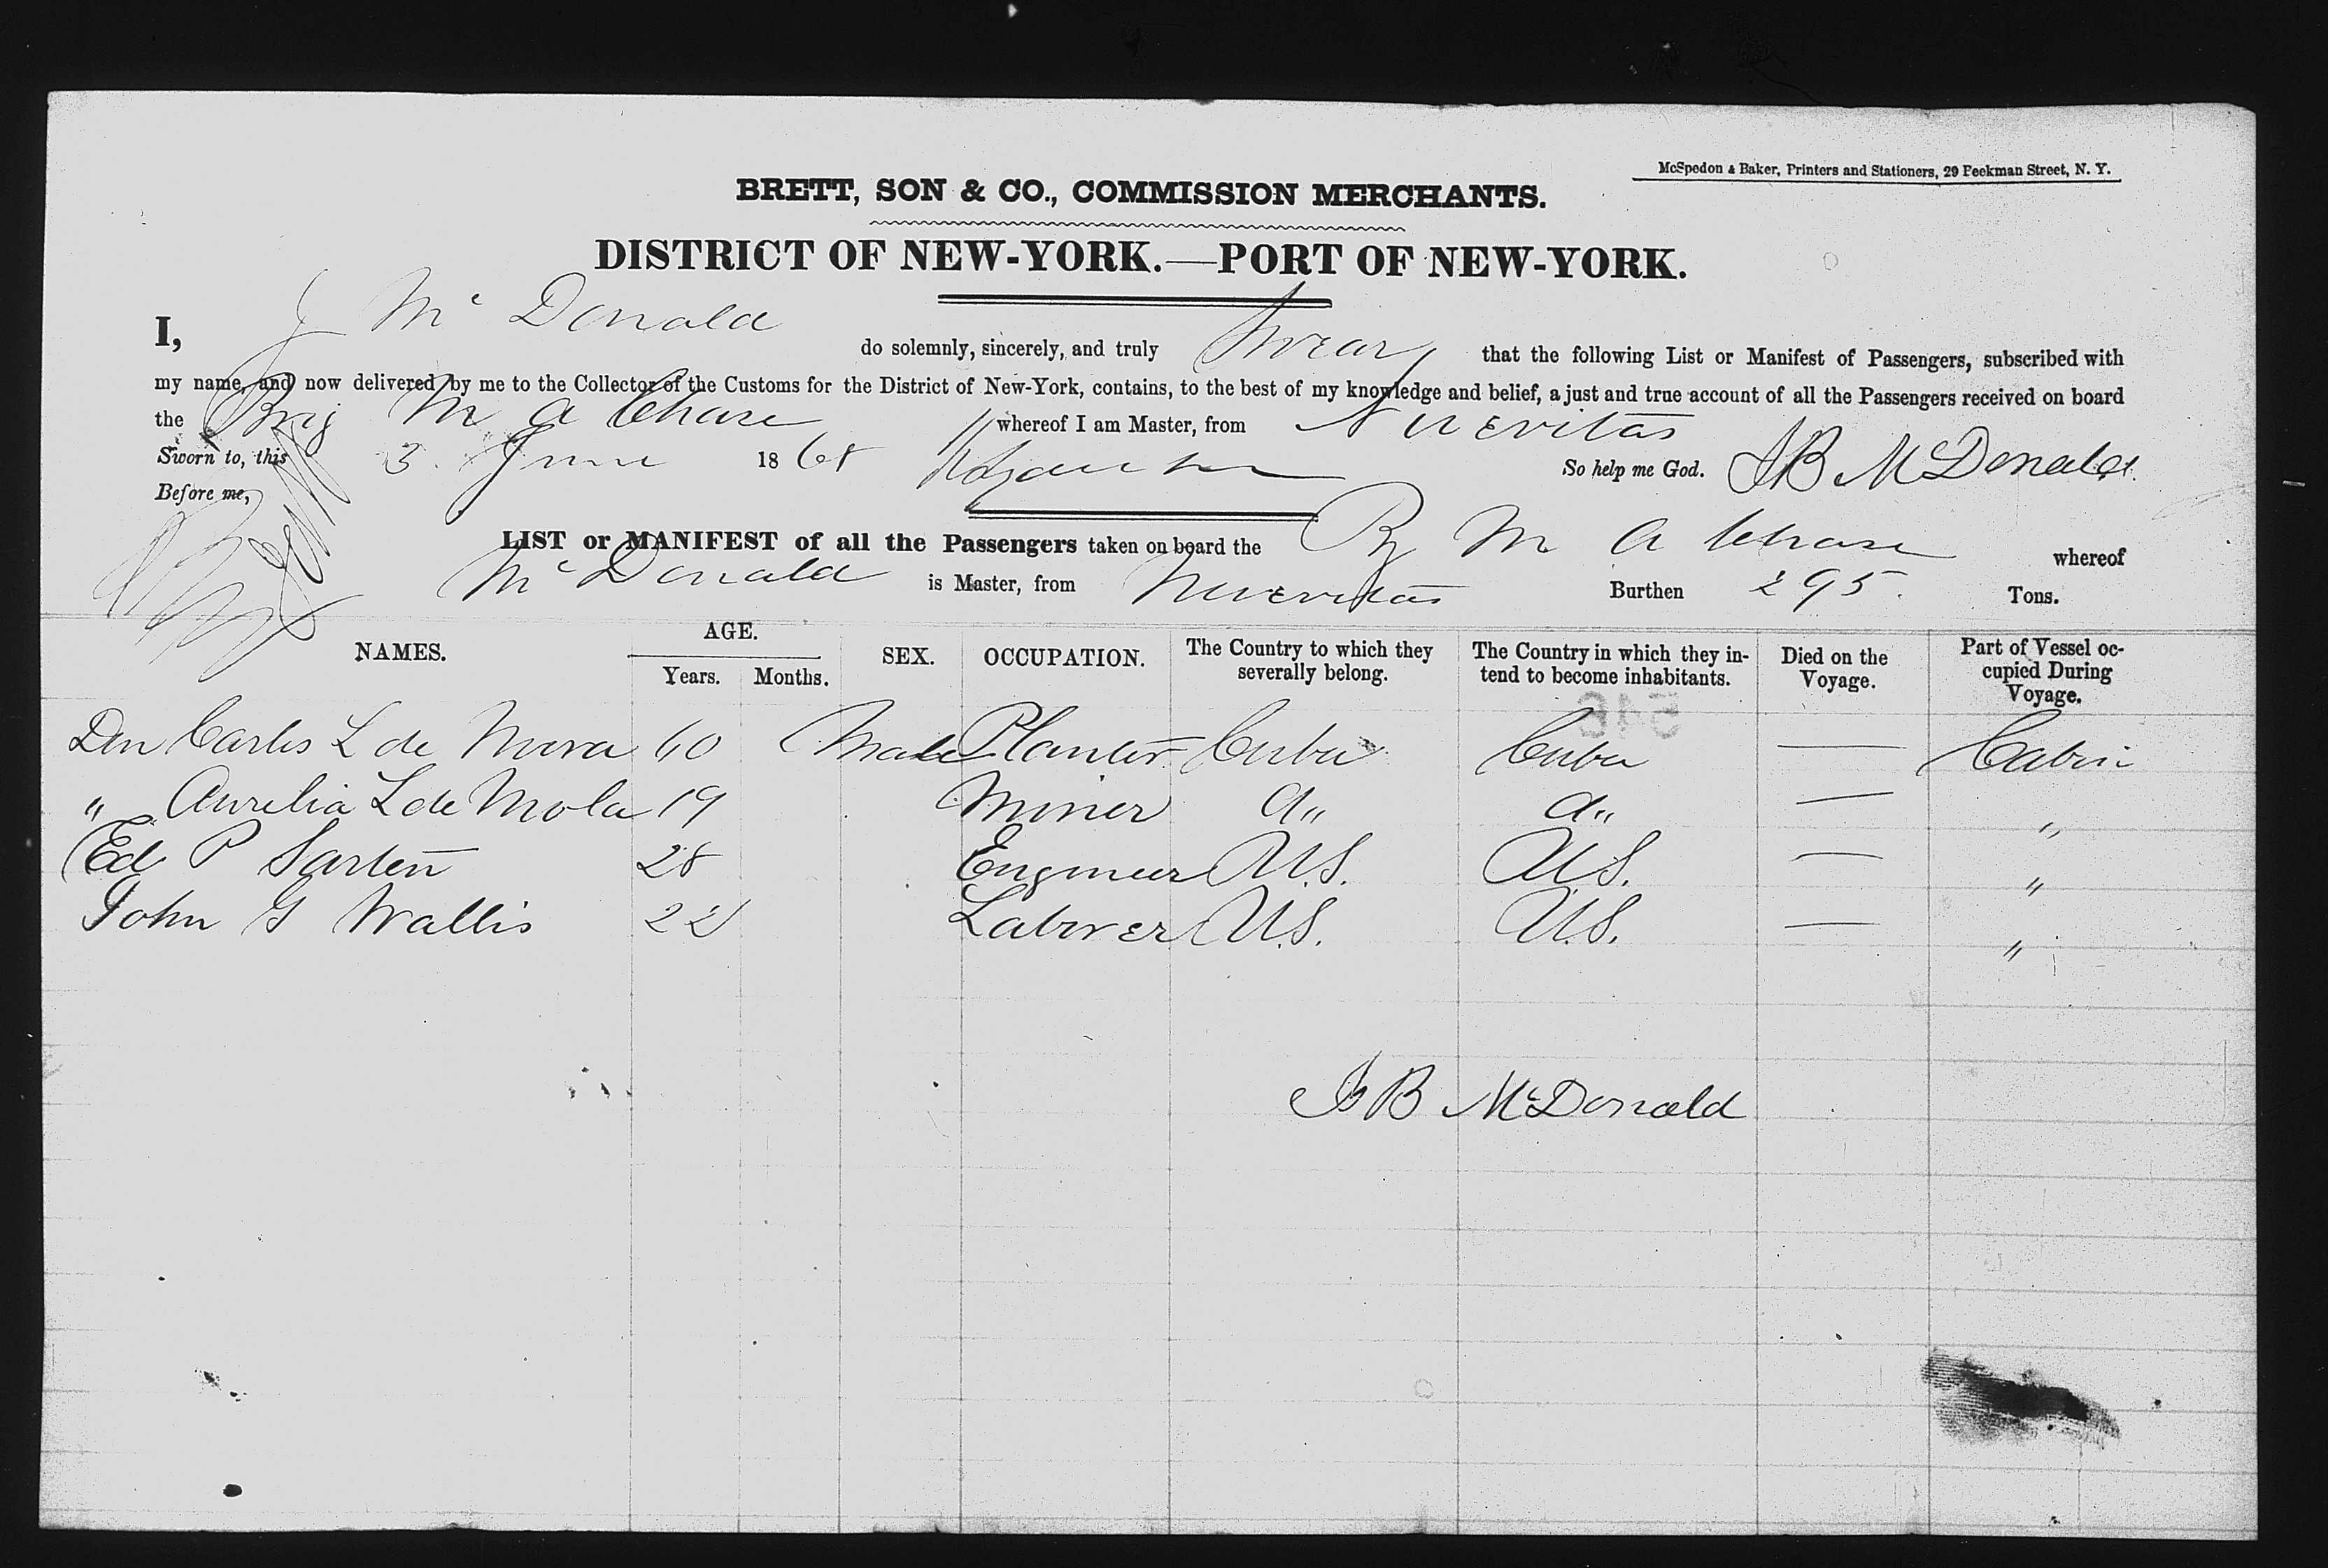 McSpedon & Baker, Printers and Stationers, 29 Feekman Street, N. Y.
BRETT, SON & CO., COMMISSION MERCHANTS.
DISTRICT OF NEW-YORK.—PORT OF NEW-YORK.
I, J Mc Donald do solemnly, sincerely, and truly swear that the following List or Manifest of Passengers, subscribed with
my name, and now delivered by me to the Collector of the Customs for the District of New-York, contains, to the best of my knowledge and belief, a just and true account of all the Passengers received on board
the Brig M A Chase whereof I am Master, from Nuevitas
Sworn to, this 3 June 1868 So help me God. JB McDonald
Before me,
LIST or MANIFEST of all the Passengers taken on board the Bg M A Chase whereof
Mc Donald is Master, from Nuevitas Burthen 295. Tons.
NAMES. AGE. Years. Months. SEX. OCCUPATION. The Country to which they severally belong. The Country in which they intend to become inhabitants. Died on the Voyage. Part of Vessel occupied During Voyage.
546
Don Carlos L de Mora 60 Male Planter Cuba Cuba — Cabin
" Aurelia L de Mola 19 Miner do do — "
Ed P 28 Engineer U.S. U.S. — "
John G Wallis 22 Laborer U.S. U.S. — "
JB McDonald